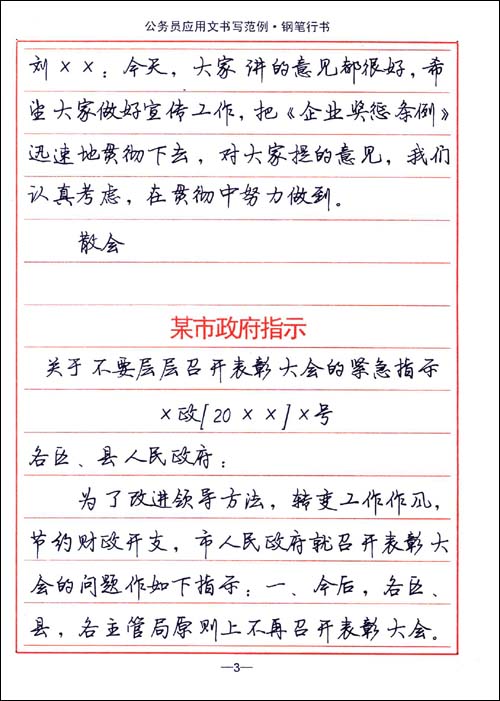 公务员应用文书写范例·钢笔行书
刘××：今天，大家讲的意见都很好，希
望大家做好宣传工作，把《企业奖惩条例》
迅速地贯彻下去，对大家提的意见，我们
认真考虑，在贯彻中努力做到。
散会
某市政府指示
关于不要层层召开表彰大会的紧急指示
×政[20××]×号
各区、县人民政府：
为了改进领导方法，转变工作作风，
节约财政开支，市人民政府就召开表彰大
会的问题作如下指示：一、今后，各区、
县，各主管局原则上不再召开表彰大会。
—3—